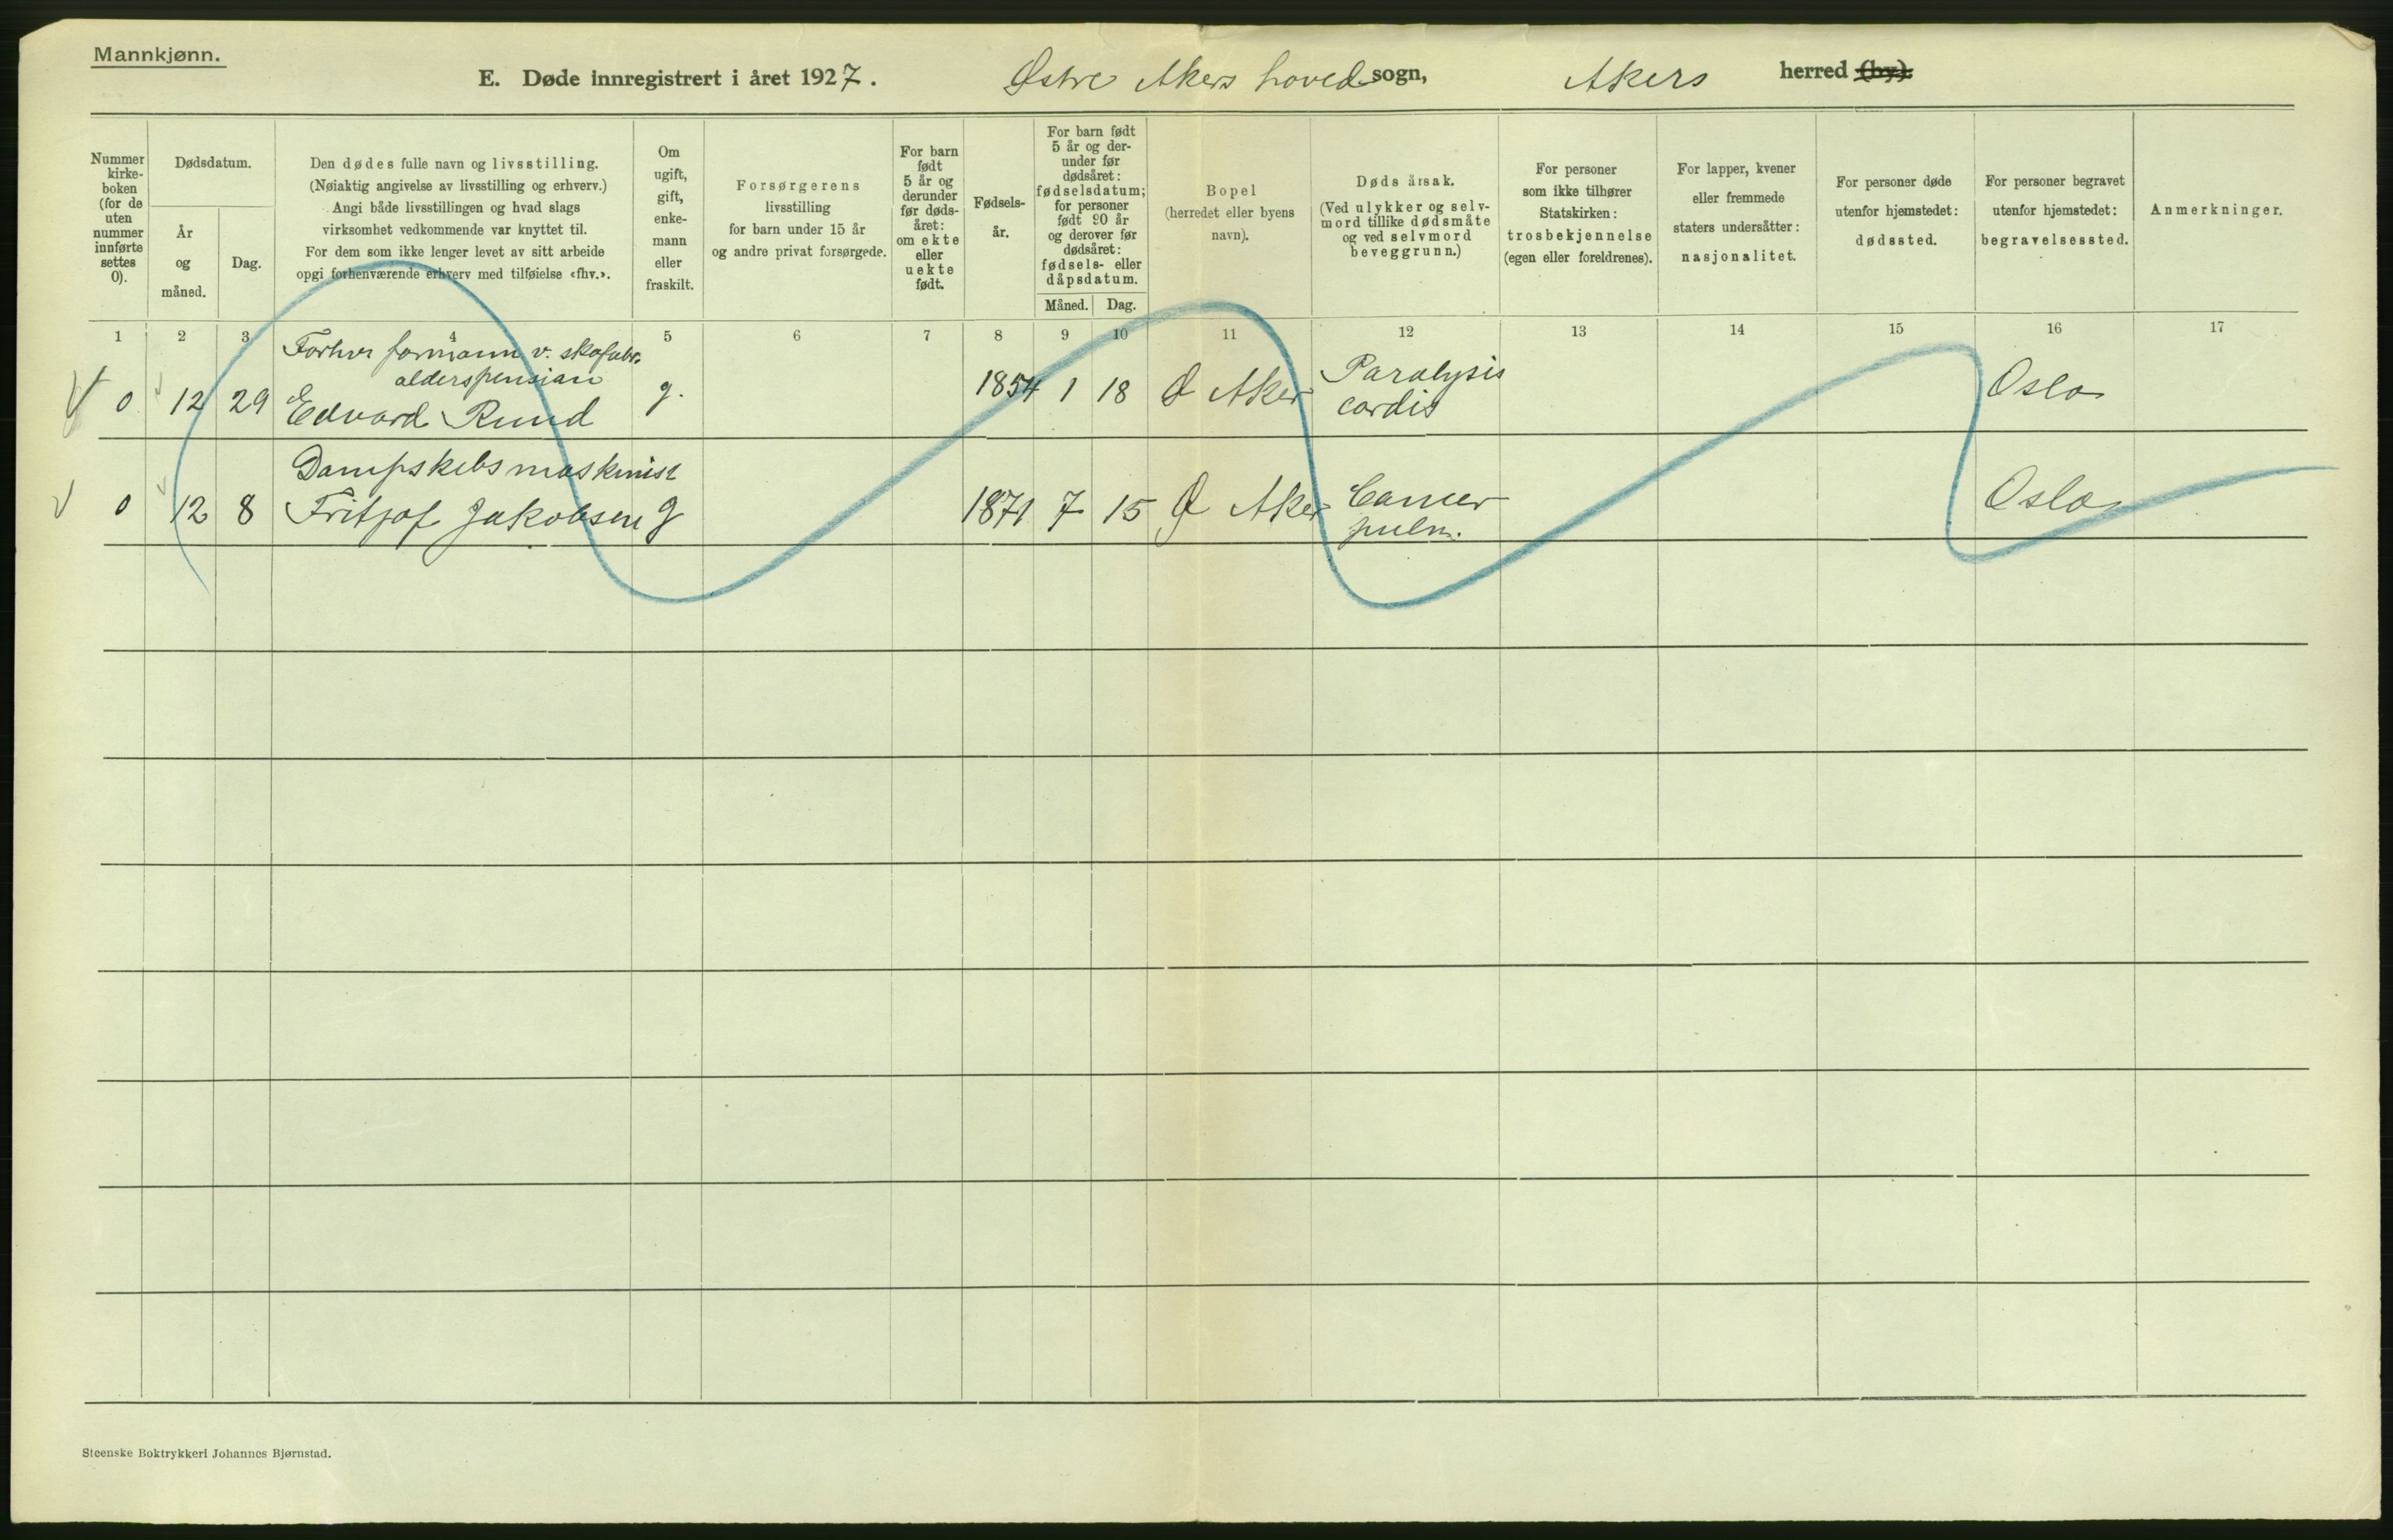 Mannkjønn.
E. Døde innregistrert i året 1927. Østre Akers hovedsogn, Akers herred (by).
Nummer
kirke-
boken
(for de
uten
nummer
innførte
settes
0).
Dødsdatum.
År
og
måned.
Dag.
Den dødes fulle navn og livsstilling.
(Nøiaktig angivelse av livsstilling og erhverv.)
Angi både livsstillingen og hvad slags
virksomhet vedkommende var knyttet til.
For dem som ikke lenger levet av sitt arbeide
opgi forhenværende erhverv med tilføielse «fhv.».
Om
ugift,
gift,
enke-
mann
eller
fraskilt.
Forsørgerens
livsstilling
for barn under 15 år
og andre privat forsørgede.
For barn
født
5 år og
derunder
før døds-
året:
om ekte
eller
uekte
født.
Fødsels-
år.
For barn født
5 år og der-
under før
dødsåret:
fødselsdatum;
for personer
født 90 år
og derover før
dødsåret:
fødsels- eller
dåpsdatum.
Måned. Dag.
Bopel
(herredet eller byens
navn).
Dødsårsak.
(Ved ulykker og selv-
mord tillike dødsmåte
og ved selvmord
beveggrunn.)
For personer
som ikke tilhører
Statskirken:
trosbekjennelse
(egen eller foreldrenes).
For lapper, kvener
eller fremmede
staters undersåtter:
nasjonalitet.
For personer døde
utenfor hjemstedet:
dødssted.
For personer begravet
utenfor hjemstedet:
begravelsessted.
Anmerkninger.
1 2 3 4 5 6 7 8 9 10 11 12 13 14 15 16 17
Forhv formann v. skofabr.
alderspension
0 12 29 Edvard Ruud g. 1854 1 18 Ø Aker Paralysis cordis Oslo
Dampskibsmaskinist
0 12 8 Fritjof Jakobsen g 1871 7 15 Ø Aker Cancer pulm. Oslo
Steenske Boktrykkeri Johannes Bjørnstad.